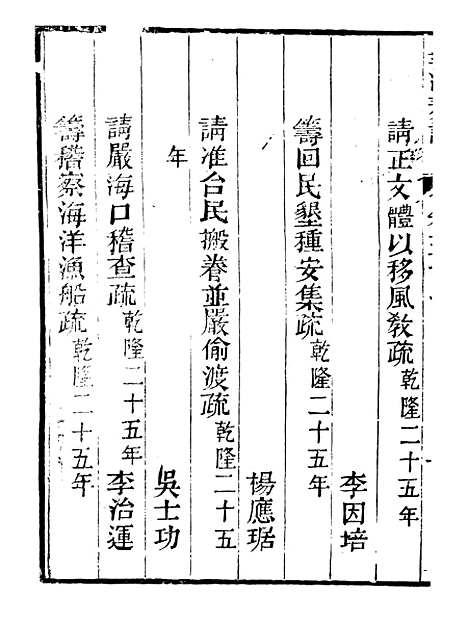 請正文體以移風敎疏乾隆二十五年
李因培
籌回民墾種安集疏乾隆二十五年
楊應琚
請准台民搬眷並嚴偷渡疏乾隆二十五
年
吳士功
請嚴海口稽查疏乾隆二十五年李治運
籌稽察海洋漁船疏乾隆二十五年